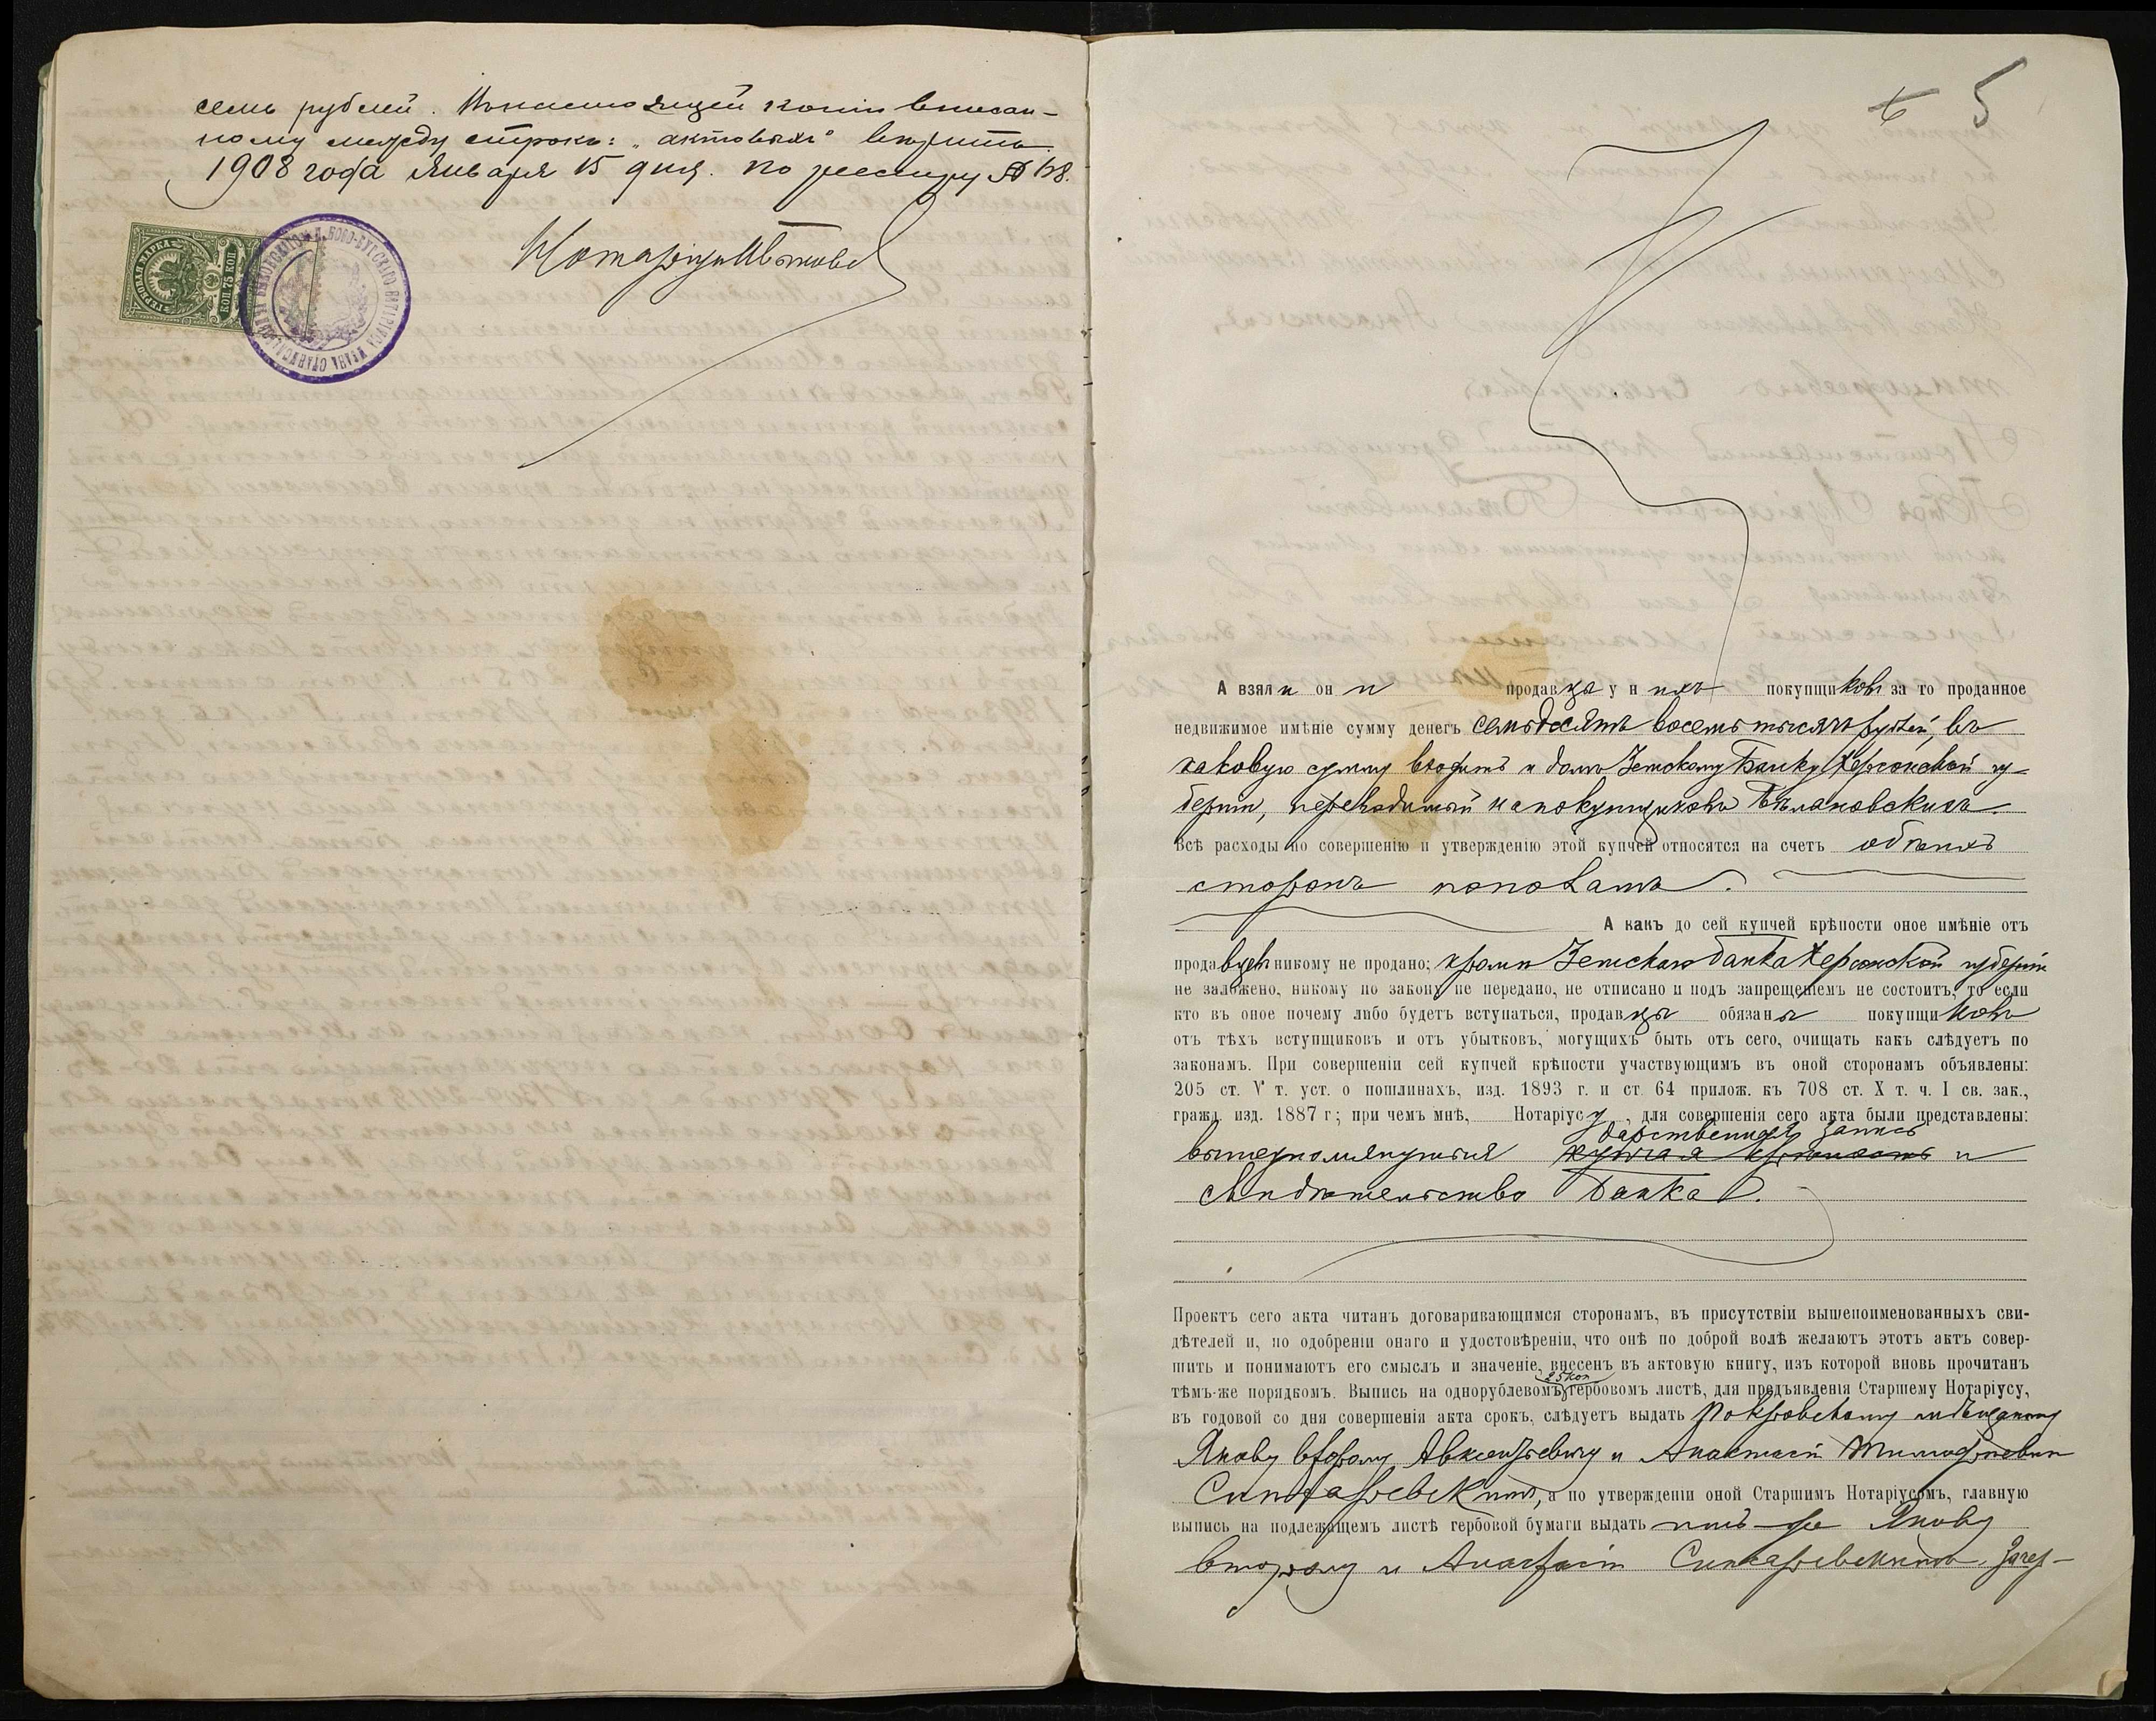 семь рублей. Въ настоящей копіи вписан-
ному между строкъ: „актовыхъ" вѣрить.
1908 года Января 15 дня. По реестру № 158.
ГЕРБОВАЯ МАРКА
75 КОП
Нотаріусъ
5
А взяли они продавцы у нихъ покупщиковъ за то проданное
недвижимое имѣніе сумму денегъ семьдесятъ восемь тысячъ рублей, въ
каковую сумму входитъ и долгъ Земскому Банку Херсонской гу-
берніи, переводимый на покупщиковъ Бѣлановскихъ.
Всѣ расходы по совершенію и утвержденію этой купчей относятся на счетъ обѣихъ
сторонъ пополамъ.
А какъ до сей купчей крѣпости оное имѣніе отъ
продавцевъ никому не продано; кромѣ Земскаго банка Херсонской губерніи
не заложено, никому по закону не передано, не отписано и подъ запрещеніемъ не состоитъ, то если
кто въ оное почему либо будетъ вступаться, продавцы обязаны покупщиковъ
отъ тѣхъ вступщиковъ и отъ убытковъ, могущихъ быть отъ сего, очищать какъ слѣдуетъ по
законамъ. При совершеніи сей купчей крѣпости участвующимъ въ оной сторонамъ объявлены:
205 ст. V т. уст. о пошлинахъ, изд. 1893 г. и ст. 64 прилож. къ 708 ст. X т. ч. I св. зак.,
гражд. изд. 1887 г; при чемъ мнѣ, Нотаріусу, для совершенія сего акта были представлены:
дарственная запись
вышеупомянутыя купчая крѣпость и
свидѣтельство Банка.
Проектъ сего акта читанъ договаривающимся сторонамъ, въ присутствіи вышепоименованныхъ сви-
дѣтелей и, по одобреніи онаго и удостовѣреніи, что онѣ по доброй волѣ желаютъ этотъ актъ совер-
шить и понимаютъ его смыслъ и значеніе, внесенъ въ актовую книгу, изъ которой вновь прочитанъ
25 коп
тѣмъ-же порядкомъ. Выпись на однорублевомъ гербовомъ листѣ, для предъявленія Старшему Нотаріусу,
въ годовой со дня совершенія акта срокъ, слѣдуетъ выдать Покровскому мѣщанину
Якову второму Авксентьевичу и Анастасіи Тимофѣевнѣ
Сингаревскимъ, а по утвержденіи оной Старшимъ Нотаріусомъ, главную
выпись на подлежащемъ листѣ гербовой бумаги выдать имъ-же Якову
второму и Анастасіи Сингаревскимъ. Зачер-